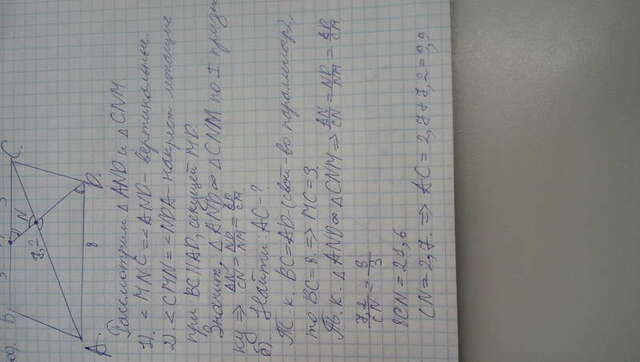 а).
B 5 3 C
7,2 N
A 8 D
Рассмотрим △AND и △CNM
1). ∠MNC = ∠AND - вертикальные
2). ∠CMN = ∠NDA - накрест лежащие
при BC||AD, секущей MD.
Значит, △AND ∞ △CNM по I призна
ку ⇒ AN/CN = ND/NM = AD/CM
б) Найти: AC - ?
Т.к. BC = AD (свой-во параллелогр),
то BC = 8. ⇒ MC = 3.
Т.к. △AND ∞ △CNM ⇒ AN/CN = ND/NM = AD/CM
7,2/CN = 8/3
8CN = 21,6
CN = 2,7. ⇒ AC = 2,7 + 7,2 = 9,9